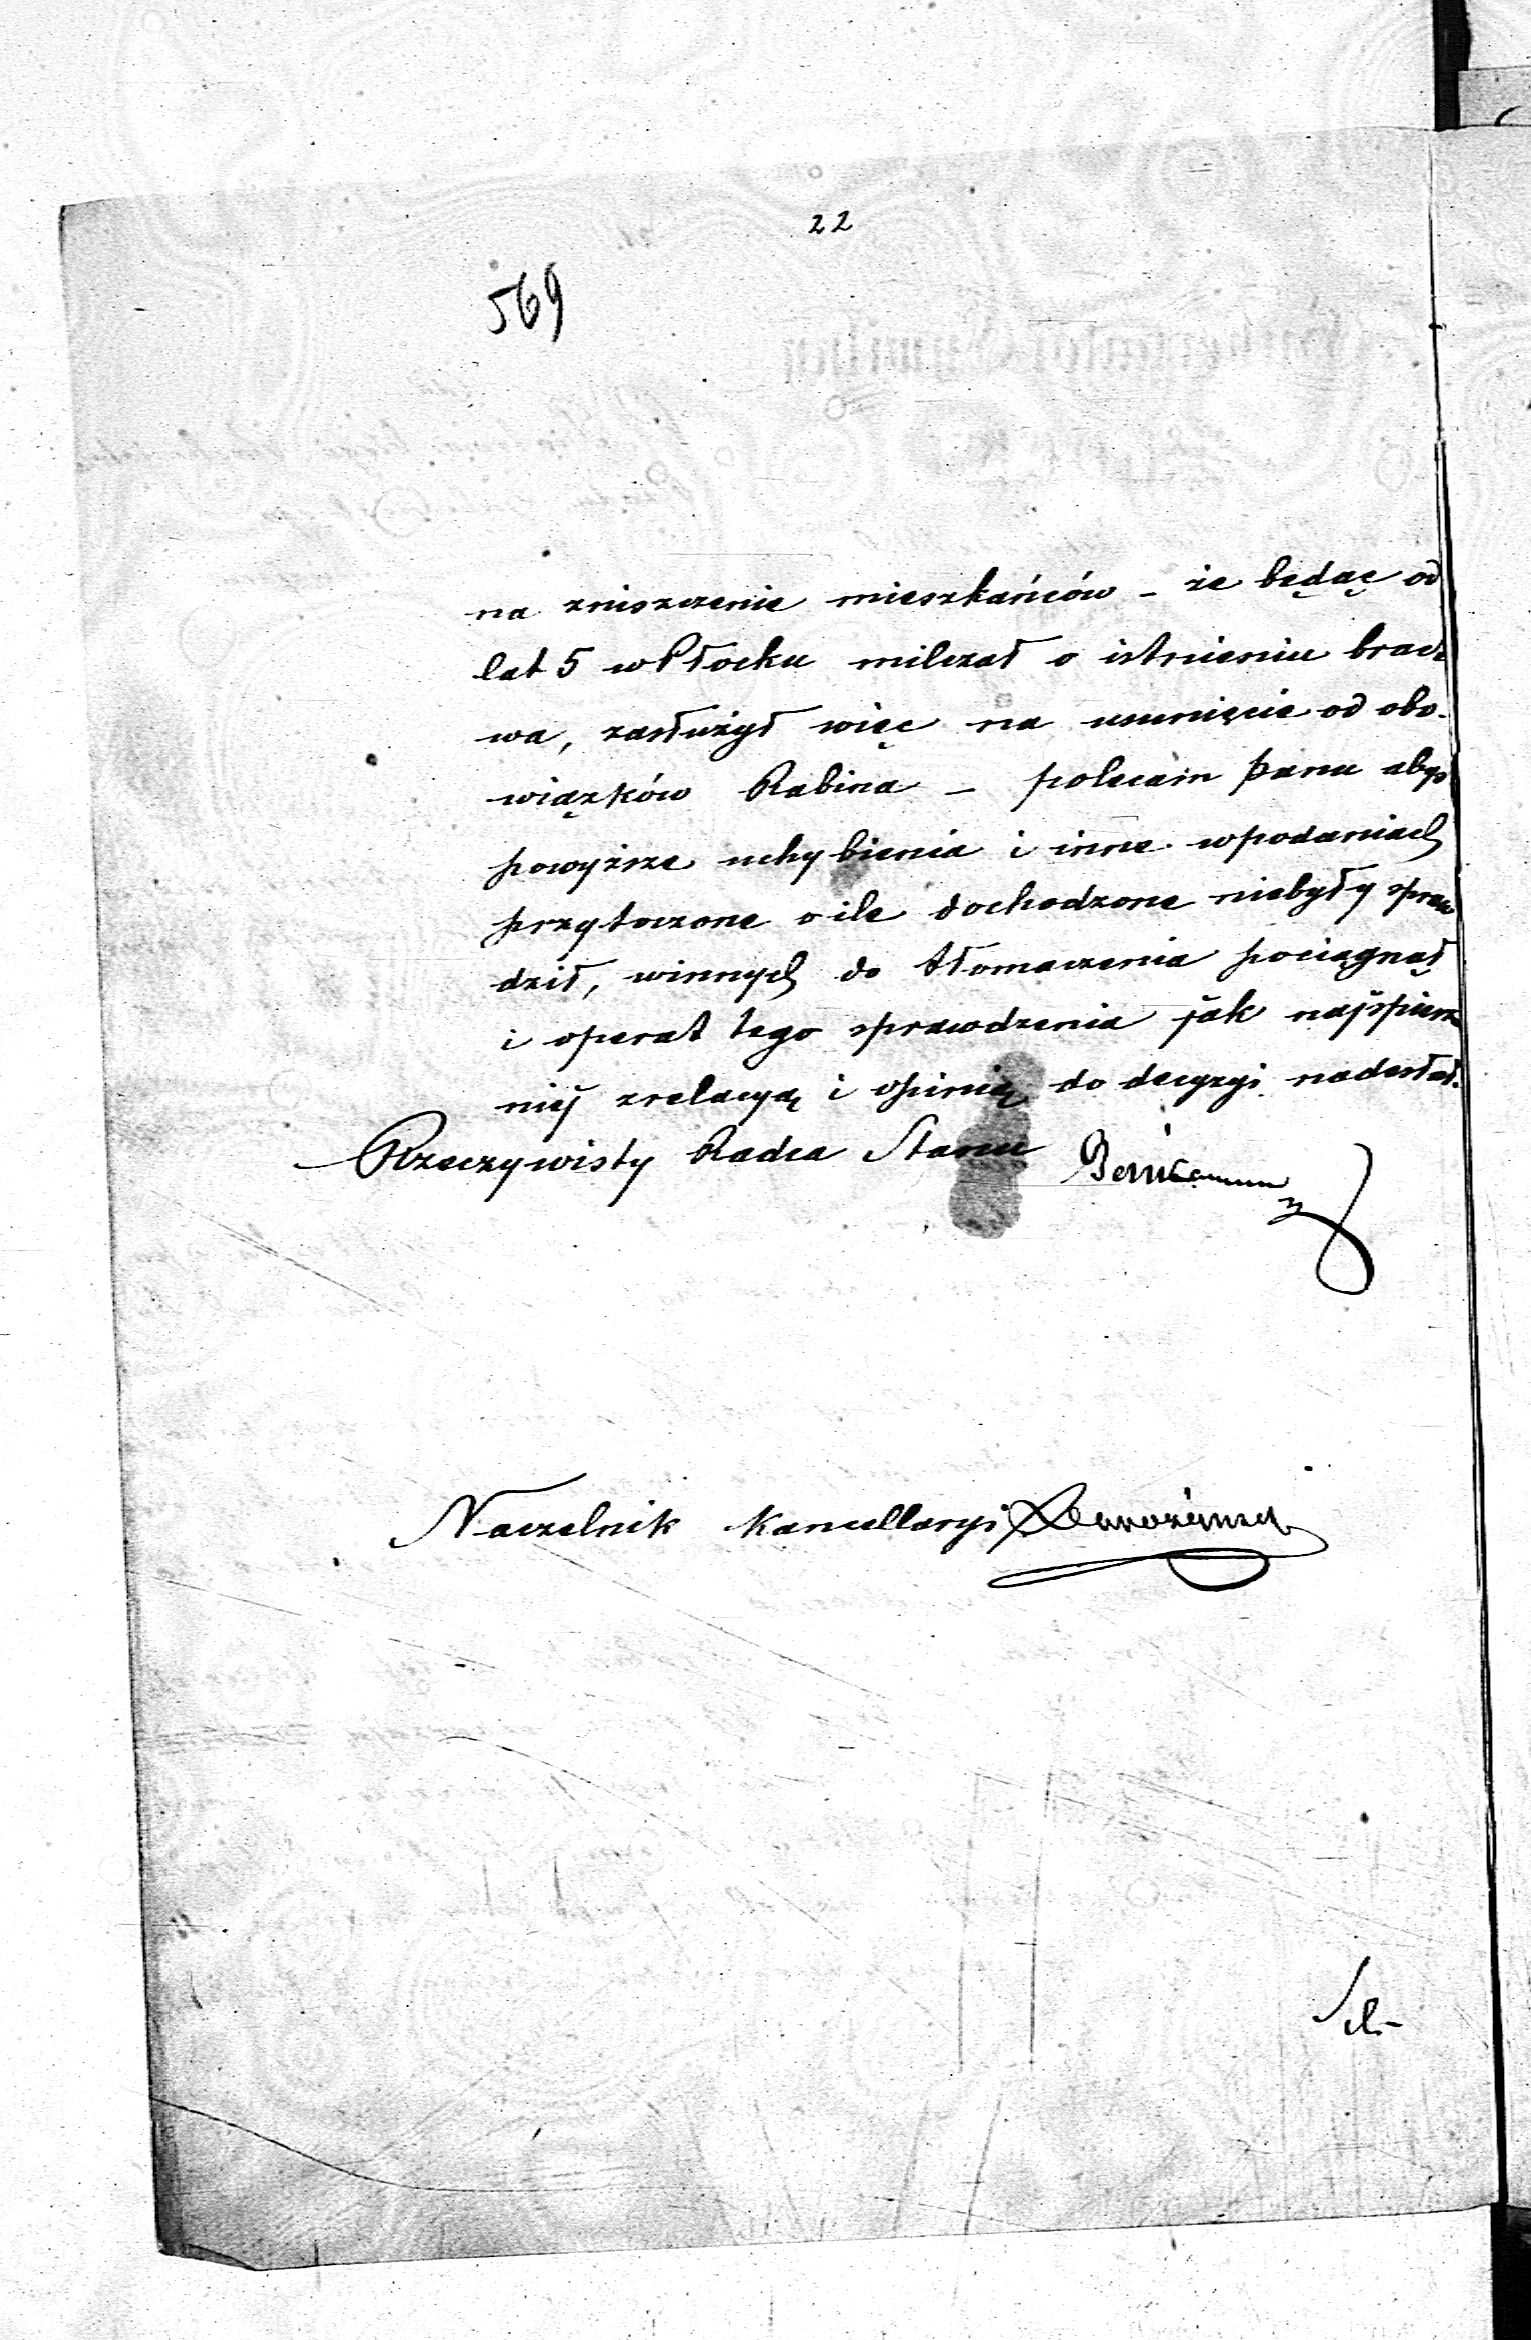 22
569
na zniszczenie mieszkańców – że będąc od
lat 5 w Płocku milczał o istnieniu bract
wa, zasłużył więc na usunięcie od obo-
wiązków Rabina – polecam Panu abyś
powyższe uchybienia i inne w podaniach
przytoczone o ile dochodzone niebyły spraw
dził, winnych do tłomaczenia pociągnął
i operat tego sprawdzenia jak najspiesz
niéj z relacyą i opinią do decyzyi nadesłał.
Rzeczywisty Radca Stanu
Naczelnik Kancellaryi